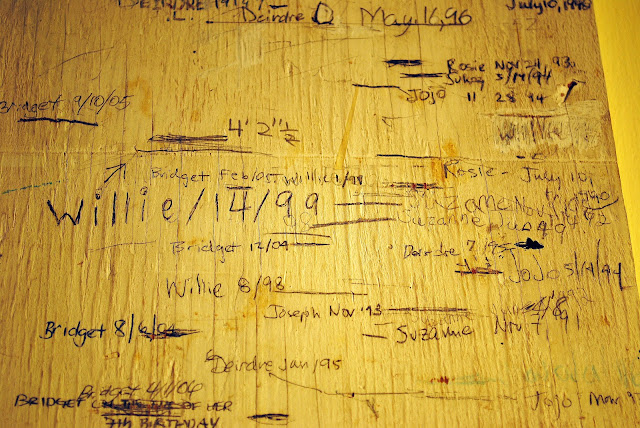 DEIRDRE
July 10, 1996
Deirdre D May 16, 96
Rosie Nov 24, 93
Sukey 5/14/94
JoJo 11 28 94
Bridget 9/10/05
4' 2"½
Willie
Bridget Feb/05 Willie 1/98
Rosie - July 10,
Willie/14/99
Suzanne
Bridget 12/04
Deirdre 7/95
JoJo 5/14/94
Willie 8/98
4/8
Joseph Nov '93
Suzanne Nov 7 91
Bridget 8/6/04
Deirdre Jan/95
Bridget 4/1/04
JoJo Mar 9
BRIDGET OF HER
7TH BIRTHDAY